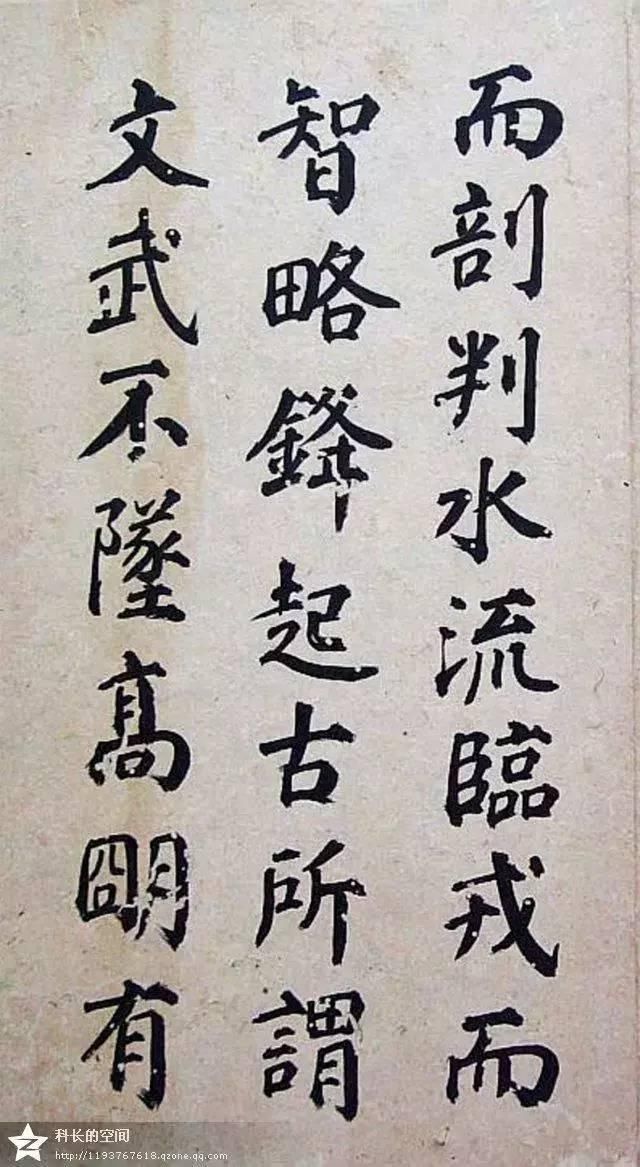 而剖判水流臨戎而
智略鋒起古所謂
文武不墜髙朙有
科长的空间
http://1193767618.qzone.qq.com